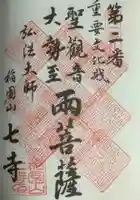 第二番
重要文化財
聖観音
大勢至
両菩薩
弘法大師
稲園山
七寺